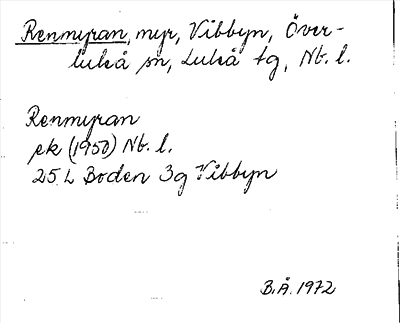 Renmyran, myr, Vibbyn, Över-
luleå sn, Luleå tg, Nb. l.
Renmyran
ek (1950) Nb. l.
25 L Boden 3g Vibbyn
B.Å. 1972